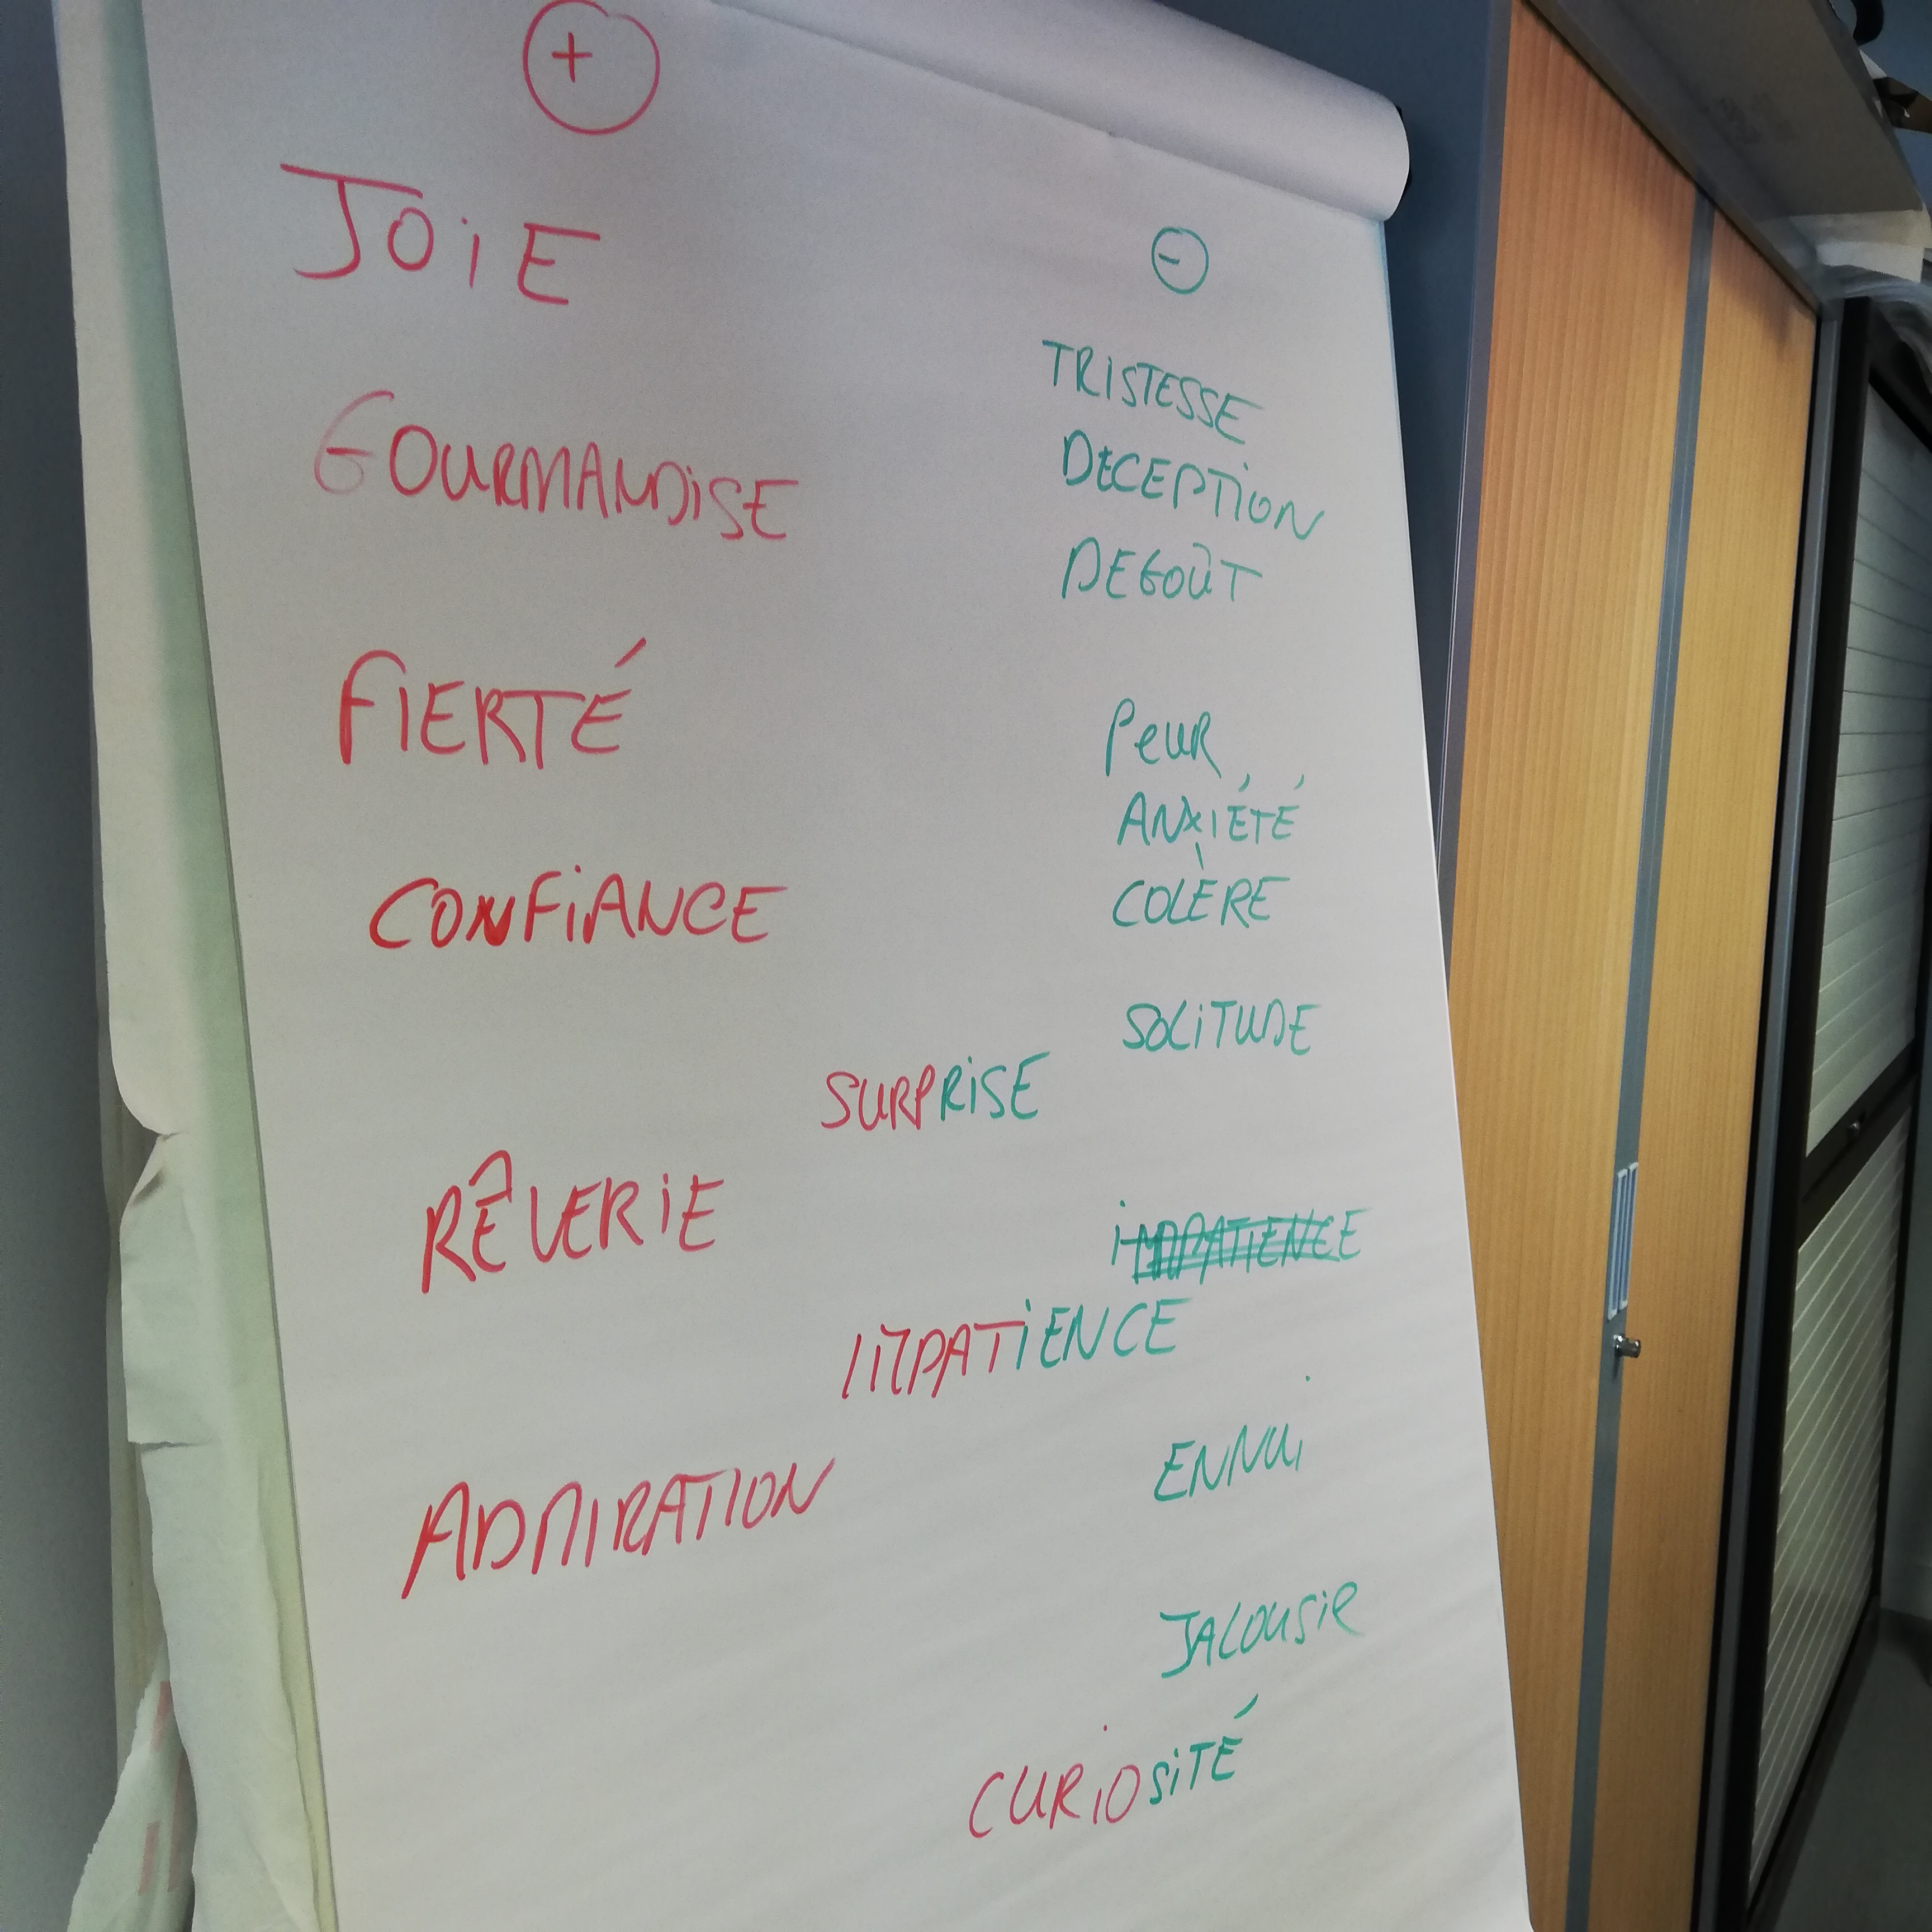 +
JOiE
GOURMANDiSE
FIERTÉ
CONFiANCE
RÊVERiE
ADMIRATION
SURPRiSE
IMPATiENCE
CURIOSiTÉ
-
TRISTESSE
DECEPTION
DEGOÛT
PeuR
ANXIÉTÉ
COLÈRE
SOLiTUDE
iMPATIENCE
ENNUi
JALOUSiE